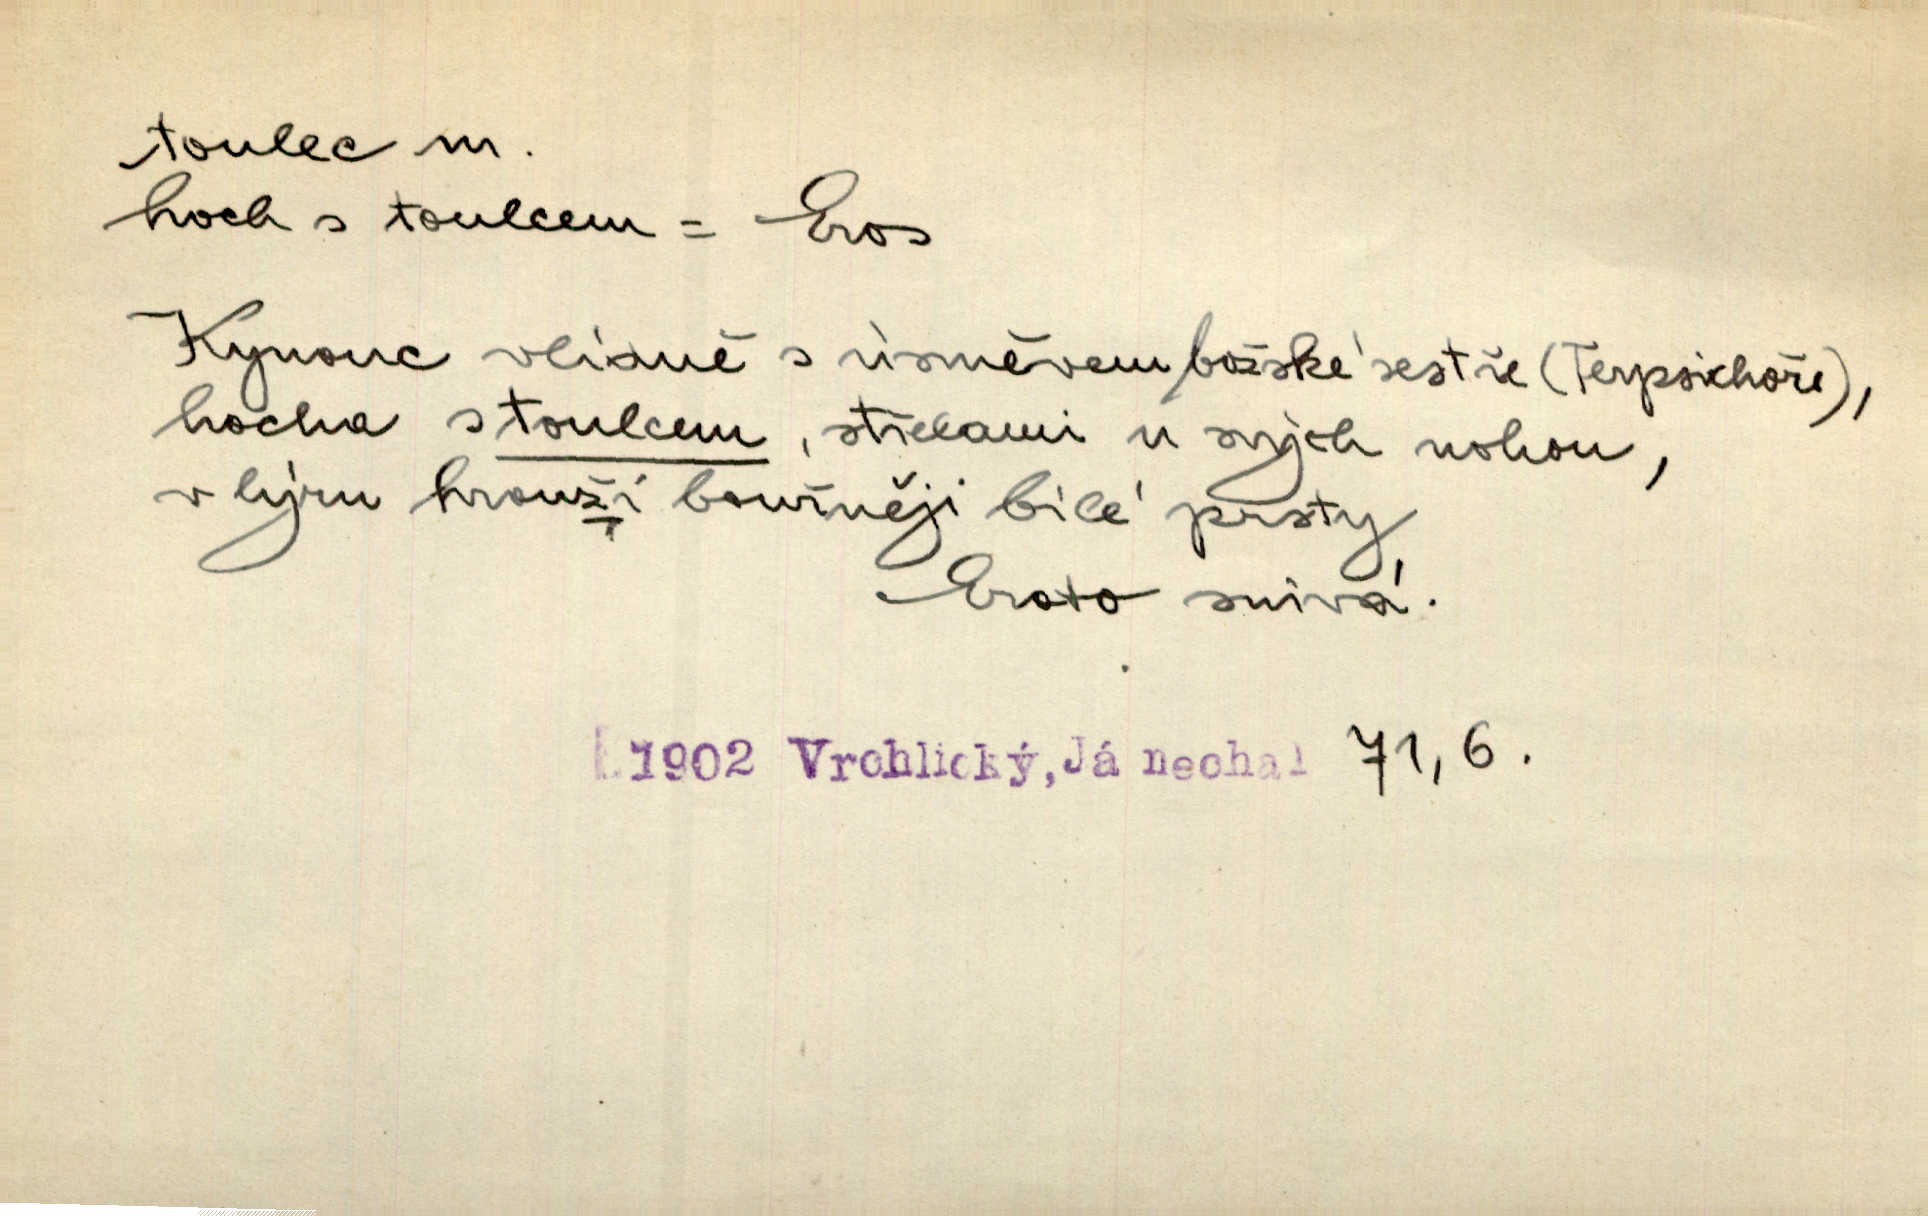 toulec m.
hoch s toulcem = Eros
Kynouc vlídně s úsměvem božské sestře (Terpsichoře),
hocha s toulcem, střelami u svých nohou,
v lýru hrouží bouřněji bílé prsty
Erato snivá.
1902 Vrchlický, Já nechal 71, 6.